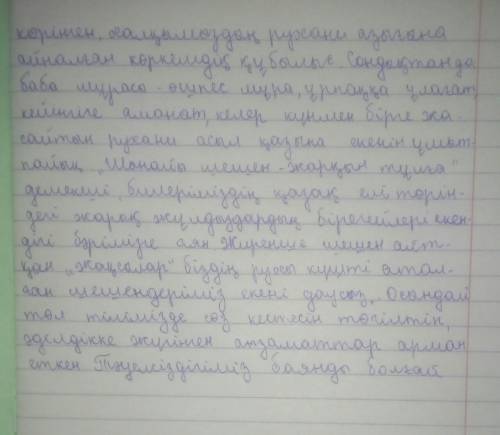 көрінен, халқымыздың рухани азығына
айналған көркемдік құбылыс. Сондықтан да
баба мұрасы - өшпес мұра, ұрпаққа ұлағат,
кейінгіге аманат, келер күнмен бірге жа-
сайтын рухани асыл қазына екенін ұмыт-
пайық. „Шонайы шешен - жарқын тұлға"
демекші, билеріміздің қазақ елі төрін-
дегі жарық жұлдыздардың бірегейлері екен-
дігі бәрімізге аян. Жиренше шешен айт-
қан „жақсылар" біздің рухы күшті атал-
ған шешендеріміз екені даусыз. Осындай
төл тілімізде сөз кестесін төгілтін,
әділдікке жүрінен азаматтар арман
еткен Тәуелсіздігіміз баянды болғай